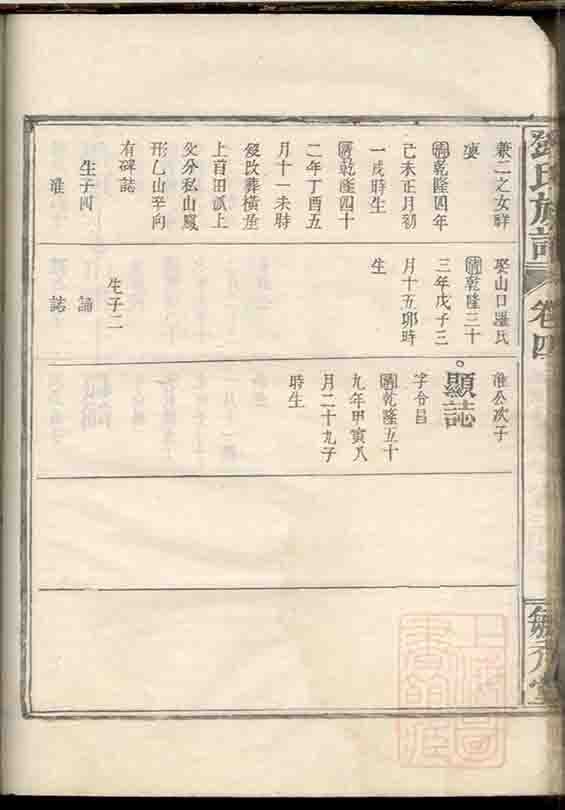 兼二之女祥
夌
清乾隆四年
己未正月初
一戌時生
清乾隆四十
二年丁酉五
月十一未時
歿改葬橫坵
上首田
父分私山鳳
形乙山辛向
有碑誌
生子四
淮
娶山口羅氏
清乾隆三十
三年戊子三
月十五卯時
生
生子二
誦
誌
淮公次子
顯誌
字令昌
清乾隆五十
九年甲寅八
月二十九子
時生
鄧氏族譜
卷四
上海圖書館藏